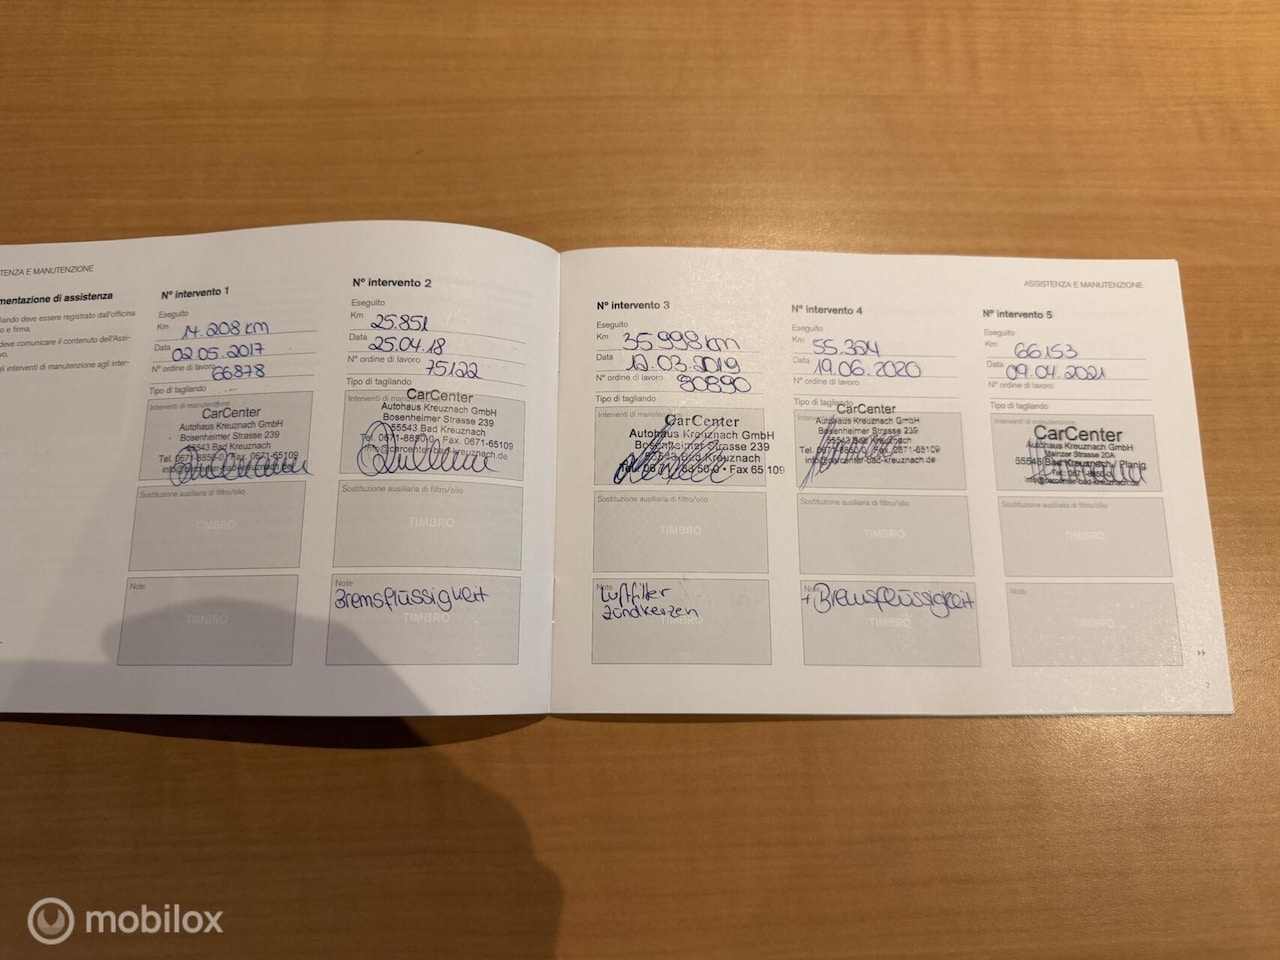 TENZA E MANUTENZIONE
mentazione di assistenza
liando deve essere registrato dall'officina
o e firma.
deve comunicare il contenuto dell'Assi-
vo.
gli interventi di manutenzione agli inter-
N° intervento 1
Eseguito
Km 14.208 km
Data 02.05.2017
N° ordine di lavoro 66878
Tipo di tagliando
Interventi di manutenzione
CarCenter
Autohaus Kreuznach GmbH
Bosenheimer Strasse 239
55543 Bad Kreuznach
Tel. 0671-8850-0 Fax. 0671-65109
Sostituzione ausiliaria di filtro/olio
TIMBRO
Note
TIMBRO
N° intervento 2
Eseguito
Km 25.851
Data 25.04.18
N° ordine di lavoro 75122
Tipo di tagliando
Interventi di
CarCenter
Autohaus Kreuznach GmbH
Bosenheimer Strasse 239
55543 Bad Kreuznach
Tel. 0671-8850-0 Fax. 0671-65109
info@carcenter-bad-kreuznach.de
Sostituzione ausiliaria di filtro/olio
TIMBRO
Note
Bremsflüssigkeit
TIMBRO
ASSISTENZA E MANUTENZIONE
N° intervento 3
Eseguito
Km 35998km
Data 03.2019
N° ordine di lavoro 80890
Tipo di tagliando
Interventi di
CarCenter
Autohaus Kreuznach GmbH
Bosenheimer Strasse 239
55543 Bad Kreuznach
Tel. 06 71 / 88 50-0 • Fax 65 109
Sostituzione ausiliaria di filtro/olio
TIMBRO
Note
Luftfilter
Zündkerzen
TIMBRO
N° intervento 4
Eseguito
Km 55.324
Data 19.06.2020
N° ordine di lavoro
Tipo di tagliando
CarCenter
Autohaus Kreuznach GmbH
Bosenheimer Strasse 239
55543 Bad Kreuznach
Tel. 0671-8850-0 Fax. 0671-65109
info@carcenter-bad-kreuznach.de
Sostituzione ausiliaria di filtro/olio
TIMBRO
Note
+ Bremsflüssigkeit
TIMBRO
N° intervento 5
Eseguito
Km 66153
Data 09.04.2021
N° ordine di lavoro
Tipo di tagliando
Interventi di manutenzione
CarCenter
Autohaus Kreuznach GmbH
Mainzer Strasse 20A
55545 Bad Kreuznach / Planig
Sostituzione ausiliaria di filtro/olio
TIMBRO
Note
TIMBRO
7
mobilox